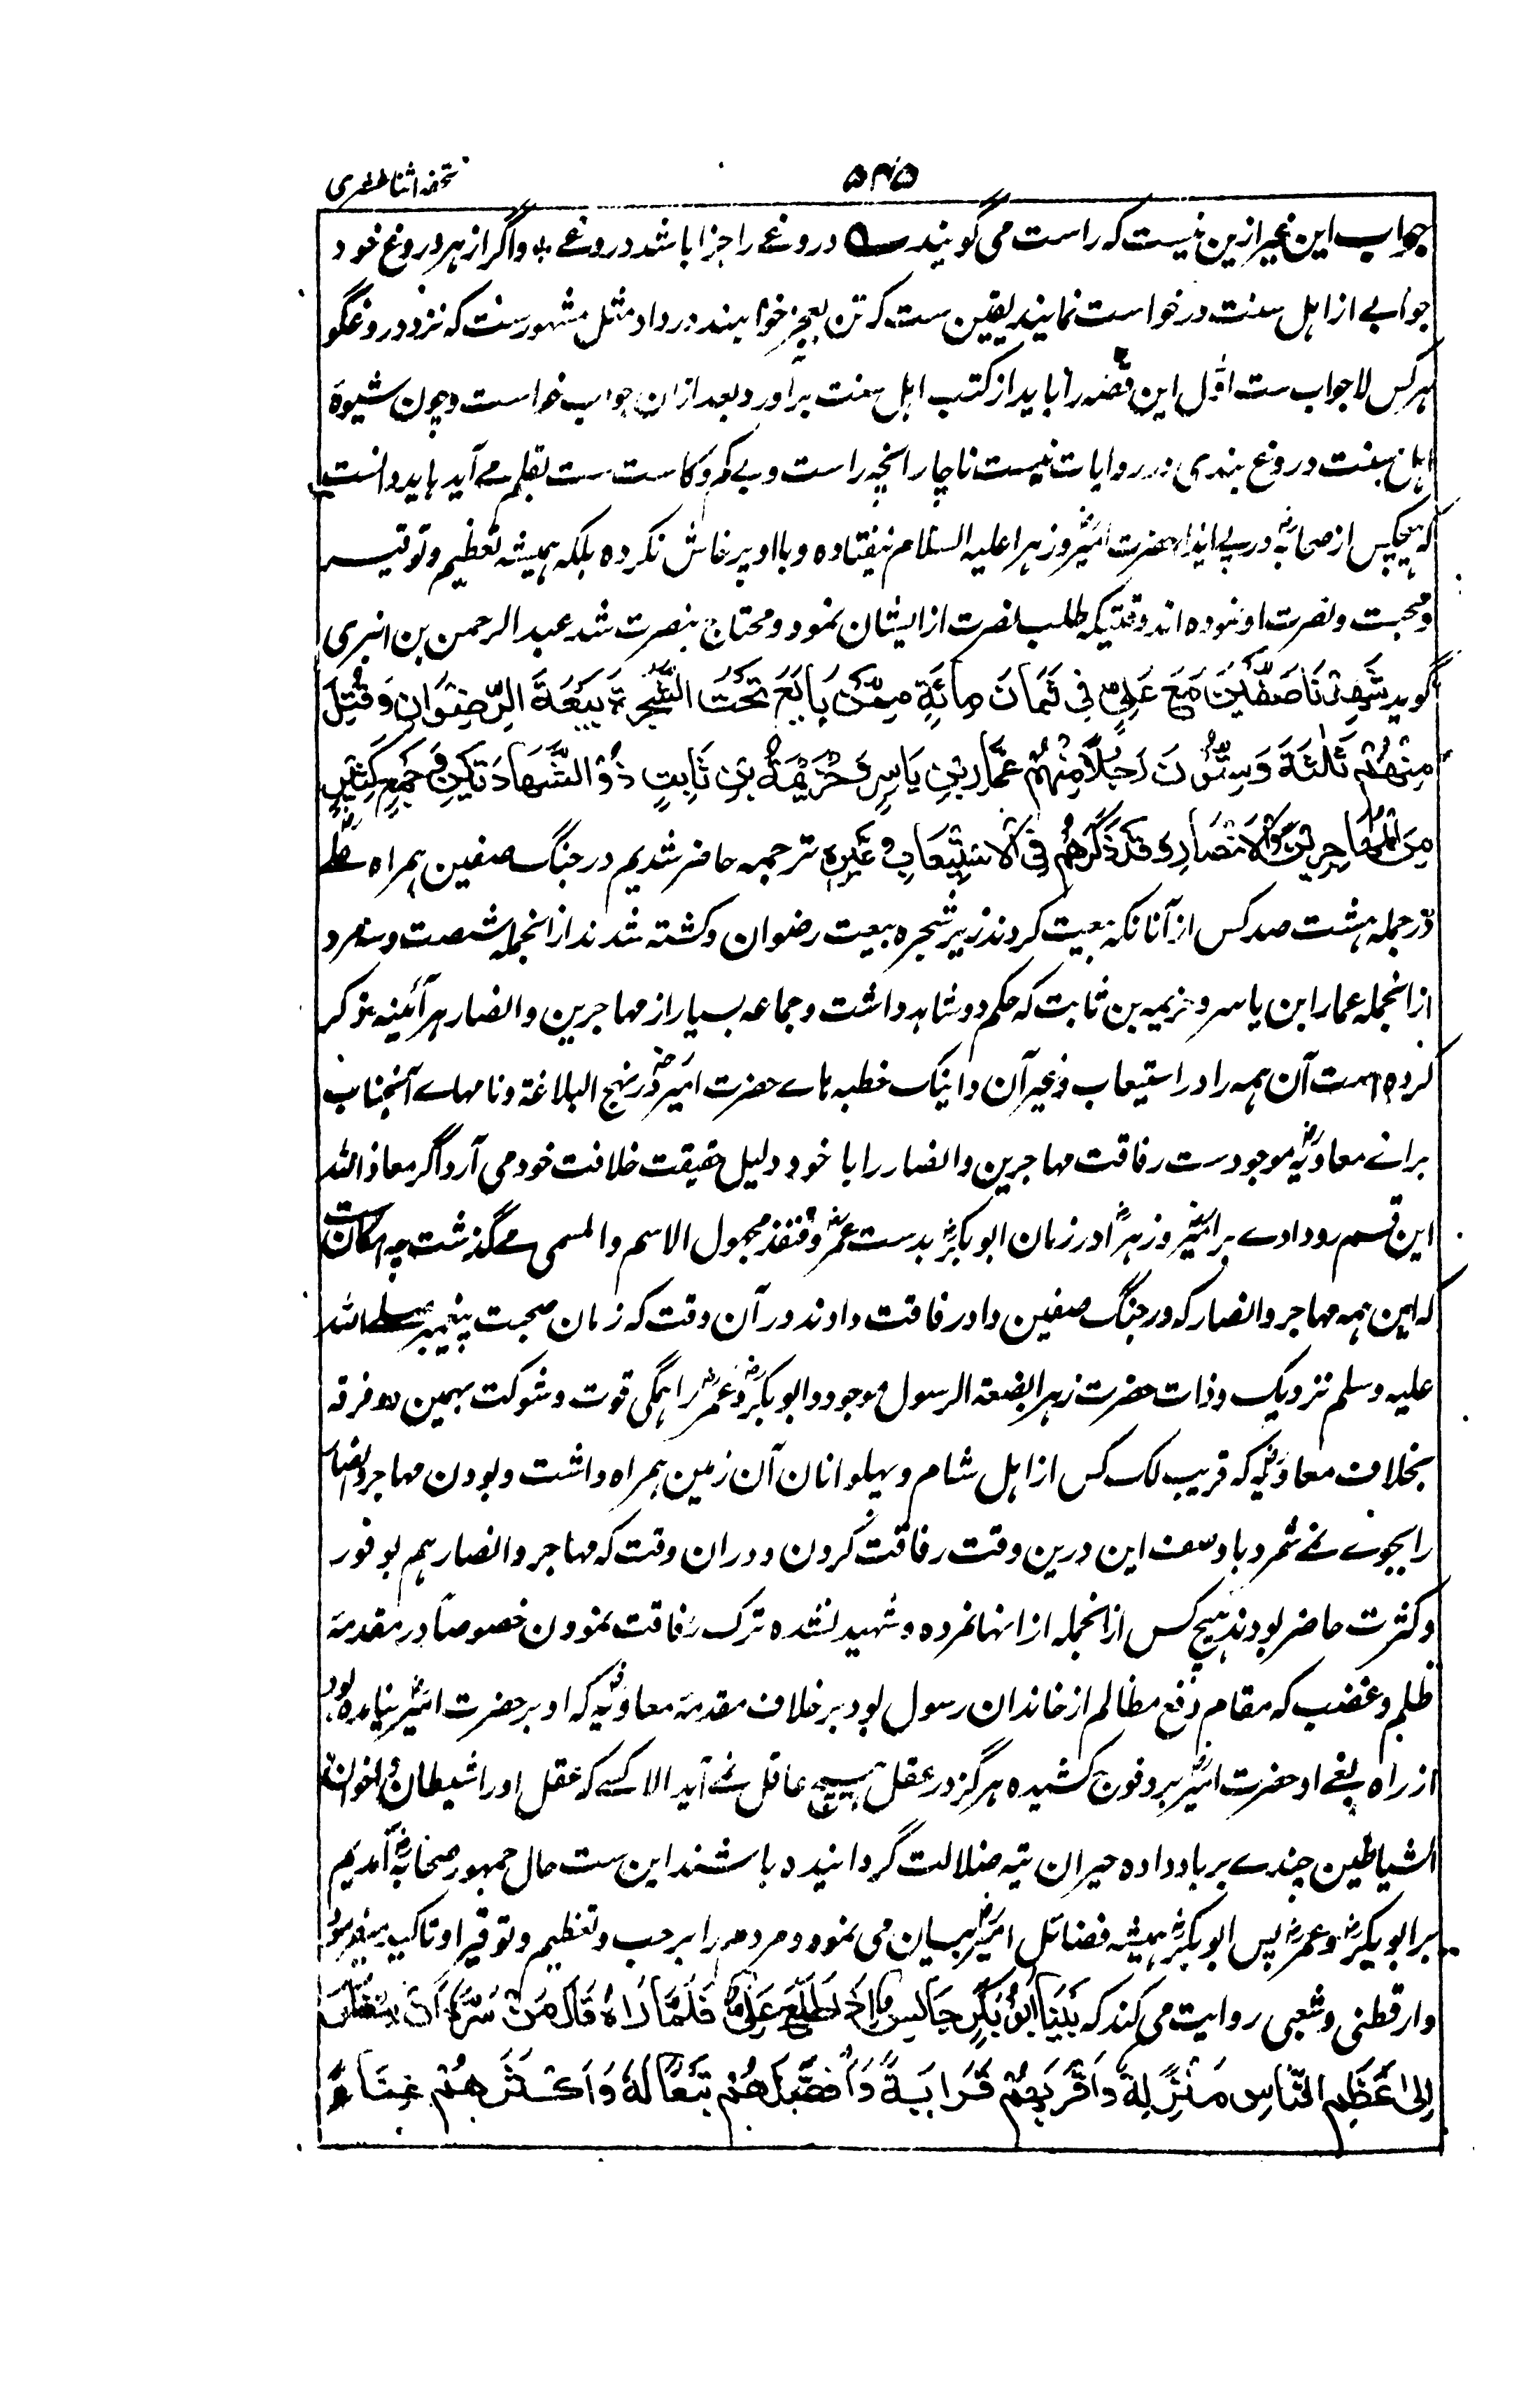 تحفه اثنا عشری
۵۴۵
جواب این غیر ازین نیست که راست می گویند ے دروغے را جزا باشد دروغے ٭ واگر از هر دروغ خود
جوابے از اہل سنت درخواست نمایند یقین ست که تن بعجز خواہند در داد مثل مشہورست که نزد دروغگو
ہر کس لاجواب ست اول این قصه را باید از کتب اہل سنت برآورد و بعد ازان جواب خواست و چون شیوۀ
اہل سنت دروغ بندی در روایات نیست ناچار آنچه راست و بے کم و کاست ست بقلم مے آید باید دانست
که ہیچکس از صحابہ رض در پے ایذا حضرت امیر رض و زہرا علیہ السلام نیفتاده و با او پرخاش نکرده بلکہ ہمیشہ تعظیم و توقیر
و محبت و نصرت او نموده اند وقتیکہ طلب نصرت از ایشان نمود و محتاج بنصرت شد عبد الرحمن بن ابزی
گوید شَهِدْنَا صِفِّینَ مَعَ عَلِیٍّ فِی ثَمَانَ مِائَةٍ مِمَّنْ بَایَعَ تَحْتَ الشَّجَرَةِ بَیْعَةَ الرِّضْوَانِ وَ قُتِلَ
مِنْهُمْ ثَلٰثَةٌ وَ سِتُّوْنَ رَجُلاً مِنْهُمْ عَمَّارُ بْنِ یَاسِرٍ وَ خُزَیْمَةُ بْنِ ثَابِتٍ ذُو الشَّهَادَتَیْنِ وَ جَمْعٍ کَثِیْرٍ
مِنَ الْمُهَاجِرِیْنَ وَالْاَنْصَارِ وَ قَدْ ذَکَرَهُمْ فِی الْاِسْتِیْعَابِ وَ غَیْرِهِ ترجمہ حاضر شدیم در جنگ صفین ہمراہ علی رض
در جملہ ہشت صد کس از آنانکہ بیعت کردند زیر شجرہ بیعت رضوان و کشتہ شدند از انجملہ شصت و سہ مرد
از انجملہ عمار ابن یاسر و خزیمہ بن ثابت کہ حکم دو شاہد داشت و جماعہ بسیار از مہاجرین و انصار ہر آئینہ ذکر
کردہ است آن ہمہ را در استیعاب و غیر آن و اینک خطبہ ہاے حضرت امیر رض در نہج البلاغة و نامہاے آنجناب
برائے معاویہ رض موجودست رفاقت مہاجرین و انصار را با خود دلیل حقیقت خلافت خود می آرد اگر معاذ اللہ
این قسم رودادے بر امیر رض و زہرا رض در زمان ابوبکر رض بدست عمر رض و قنفذ مجہول الاسم والمسمی مے گذشت چہ امکان ست
کہ این ہمہ مہاجر و انصار کہ در جنگ صفین داد رفاقت دادند در آن وقت کہ زمان صحبت پیغمبر صلے اللہ
علیہ و سلم نزدیک و ذات حضرت زہرا بضعۃ الرسول موجود و ابوبکر رض و عمر رض را ہمگی قوت و شوکت بہمین دو فرقہ
بخلاف معاویہ رض کہ قریب لک کس از اہل شام و پہلوانان آن زمین ہمراہ داشت و بودن مہاجر و انصار
را بجوے نمے شمرد باوصف این درین وقت رفاقت کردن و دران وقت کہ مہاجر و انصار ہم بوفور
و کثرت حاضر بودند ہیچ کس از انجملہ از انہا نمردہ و شہید نشدہ ترک رفاقت نمودن خصوصاً در مقدمہ
ظلم و غضب کہ مقام دفع مظالم از خاندان رسول بود بر خلاف مقدمہ معاویہ رض کہ او بر حضرت امیر رض نیامدہ بود
از راہ بغے او حضرت امیر رض برو فوج کشیدہ ہرگز در عقل ہیچ عاقل نمے آید الا کسے کہ عقل او را شیطان و اخوان
الشیاطین چندے برباد دادہ حیران تیہ ضلالت گردانیدہ باشند این ست حال جمہور صحابہ رض آمدیم
بر ابوبکر رض و عمر رض پس ابوبکر رض ہمیشہ فضائل امیر رض بیان می نمود و مردم را بر حب و تعظیم و توقیر او تاکید میفرمود
دارقطنی و شعبی روایت می کند کہ بَیْنَا اَبُوْ بَکْرٍ جَالِسٌ اِذْ طَلَعَ عَلِیٌّ فَلَمَّا رَاٰهُ قَالَ مَنْ سَرَّهُ اَنْ یَنْظُرَ
اِلٰی اَعْظَمِ النَّاسِ مَنْزِلَةً وَ اَقْرَبِهِمْ قَرَابَةً وَ اَفْضَلِهُمْ حَالَةً وَ اَکْثَرِهِمْ غَنَاءً